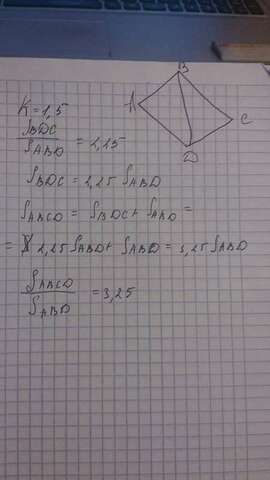 B
A
C
D
K = 1,5
SBDC / SABD = 2,25
SBDC = 2,25 SABD
SABCD = SBDC + SABD =
= 2,25 SABD + SABD = 3,25 SABD
SABCD / SABD = 3,25